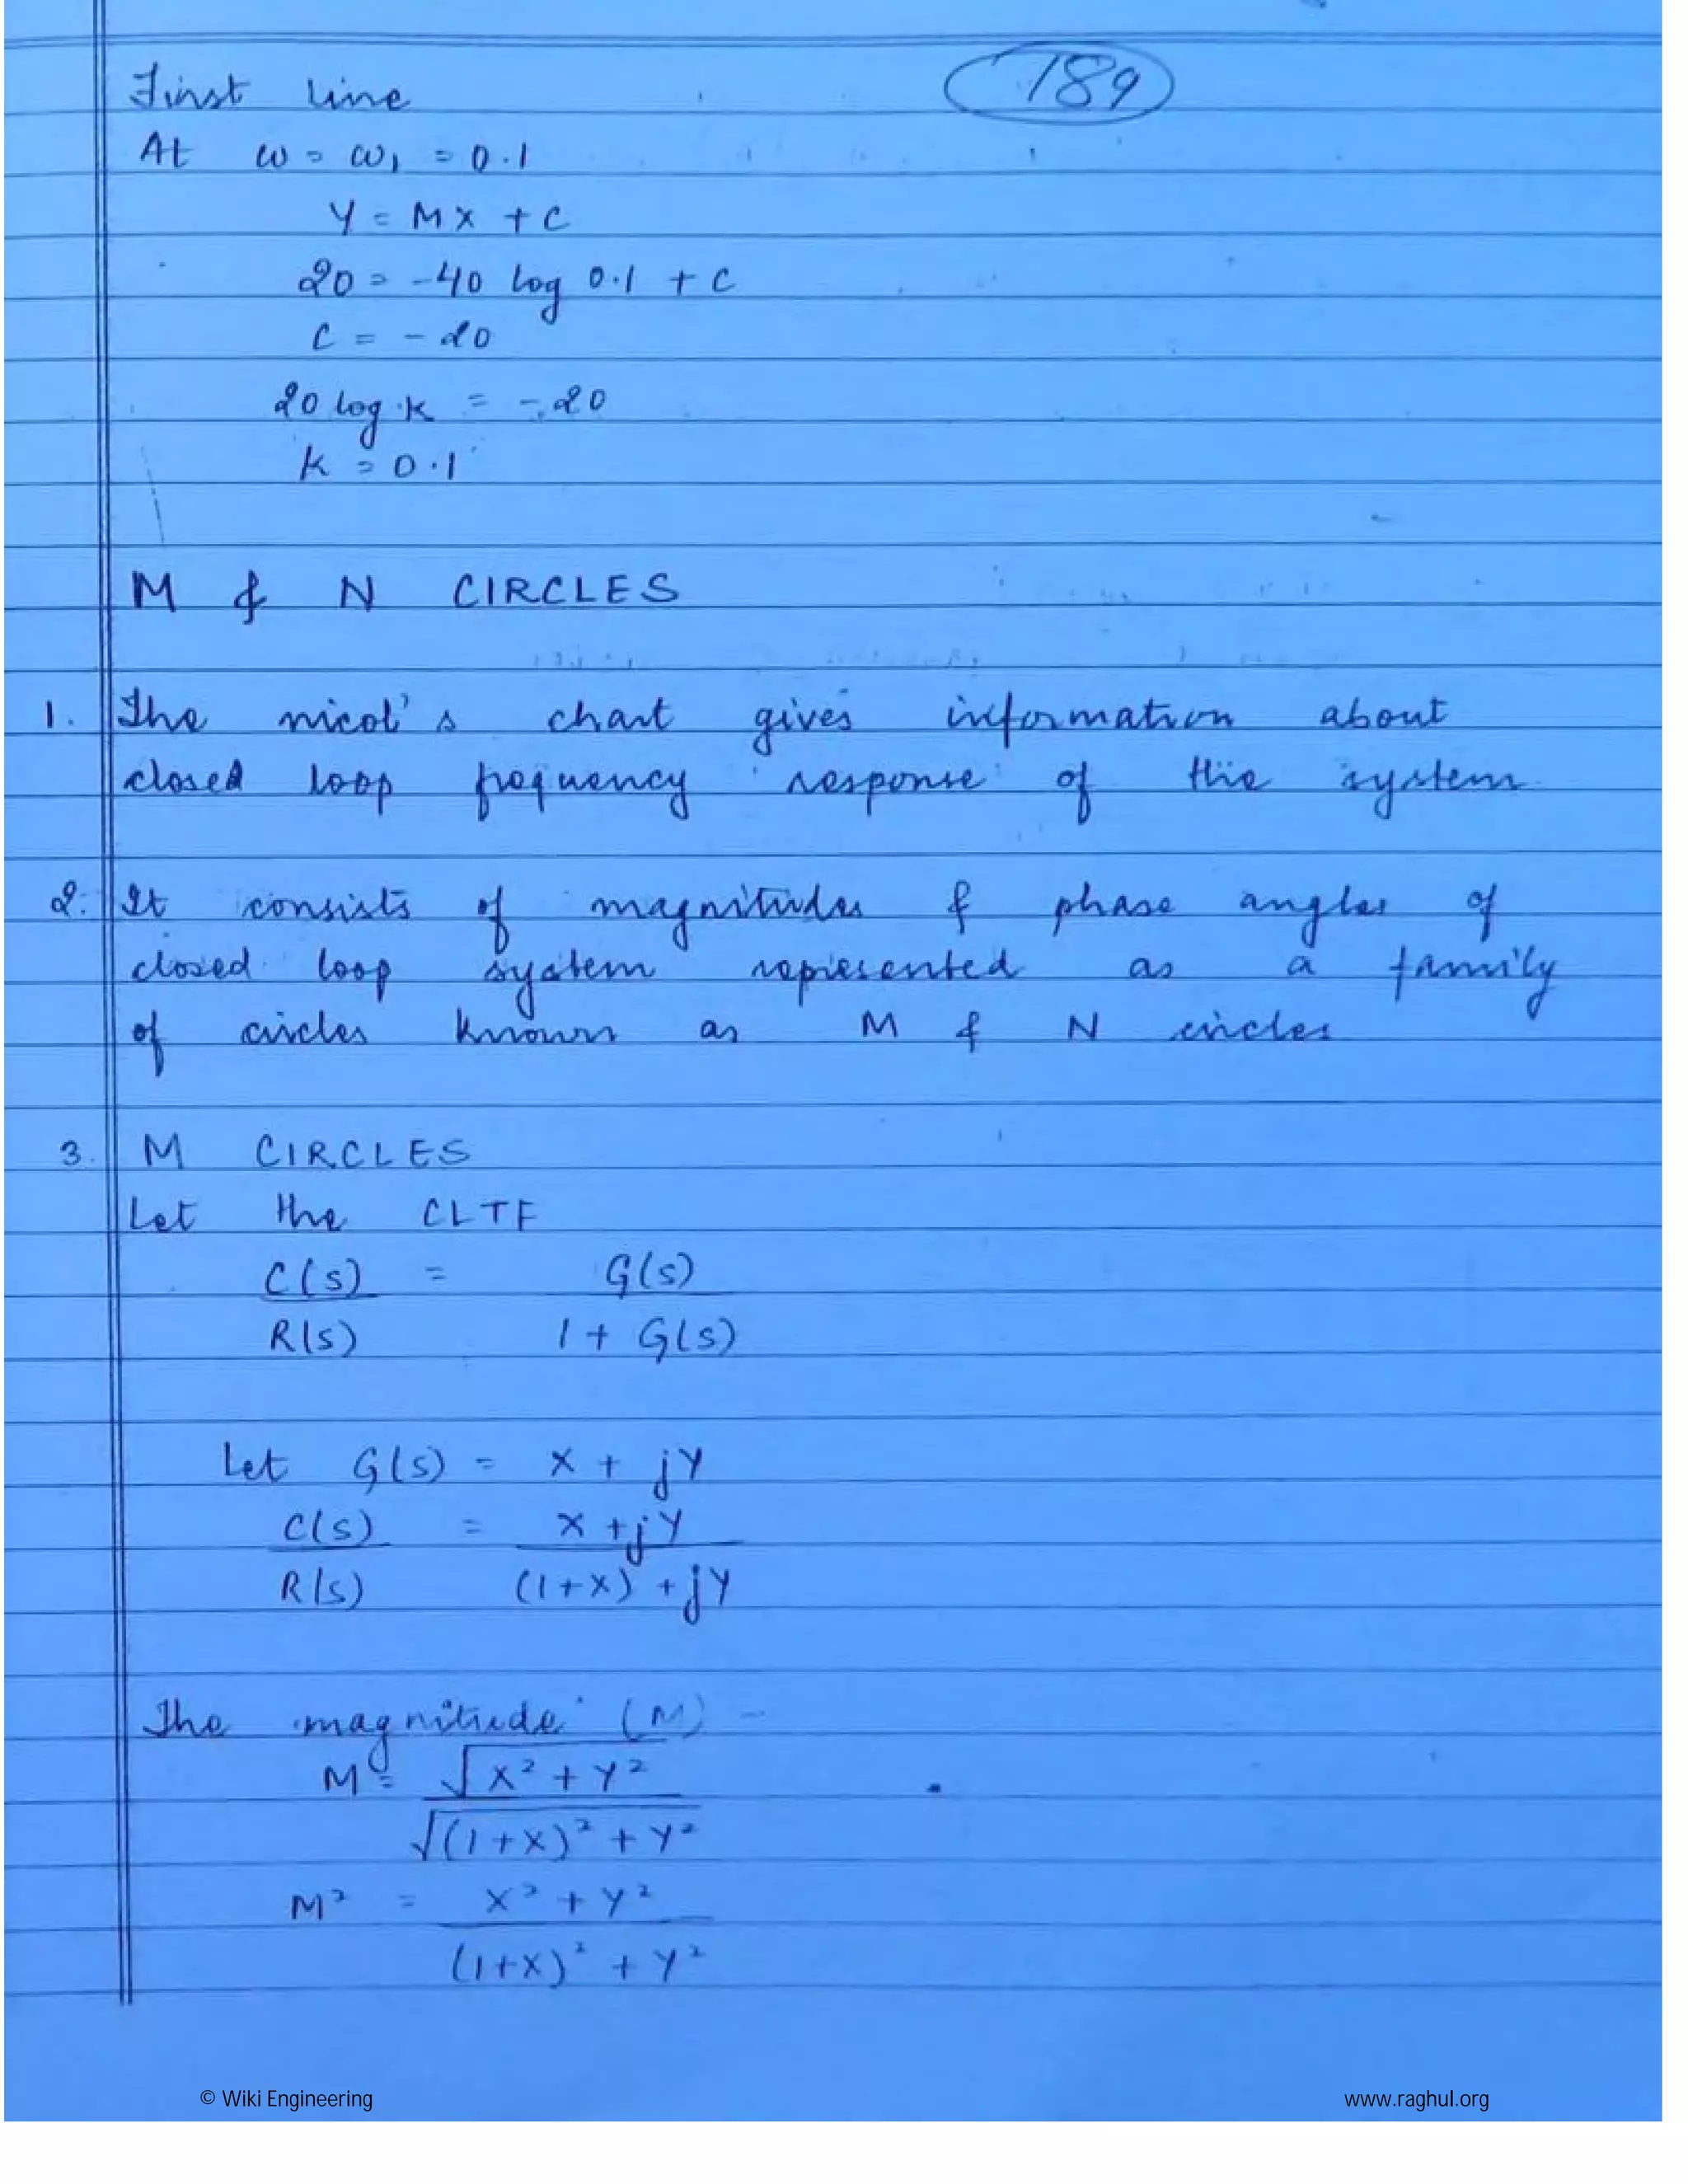 First line 189
At ω = ω₁ = 0.1
Y = MX + C
20 = -40 log 0.1 + C
C = -20
20 log K = -20
K = 0.1
M & N CIRCLES
1. The nicol's chart gives information about
closed loop frequency response of the system
2. It consists of magnitudes & phase angles of
closed loop system represented as a family
of circles known as M & N circles
3. M CIRCLES
Let the CLTF
C(s) = G(s)
R(s) 1 + G(s)
Let G(s) = X + jY
C(s) = X + jY
R(s) (1+X) + jY
The magnitude (M) -
M = √X² + Y²
√(1+X)² + Y²
M² = X² + Y²
(1+X)² + Y²
© Wiki Engineering www.raghul.org